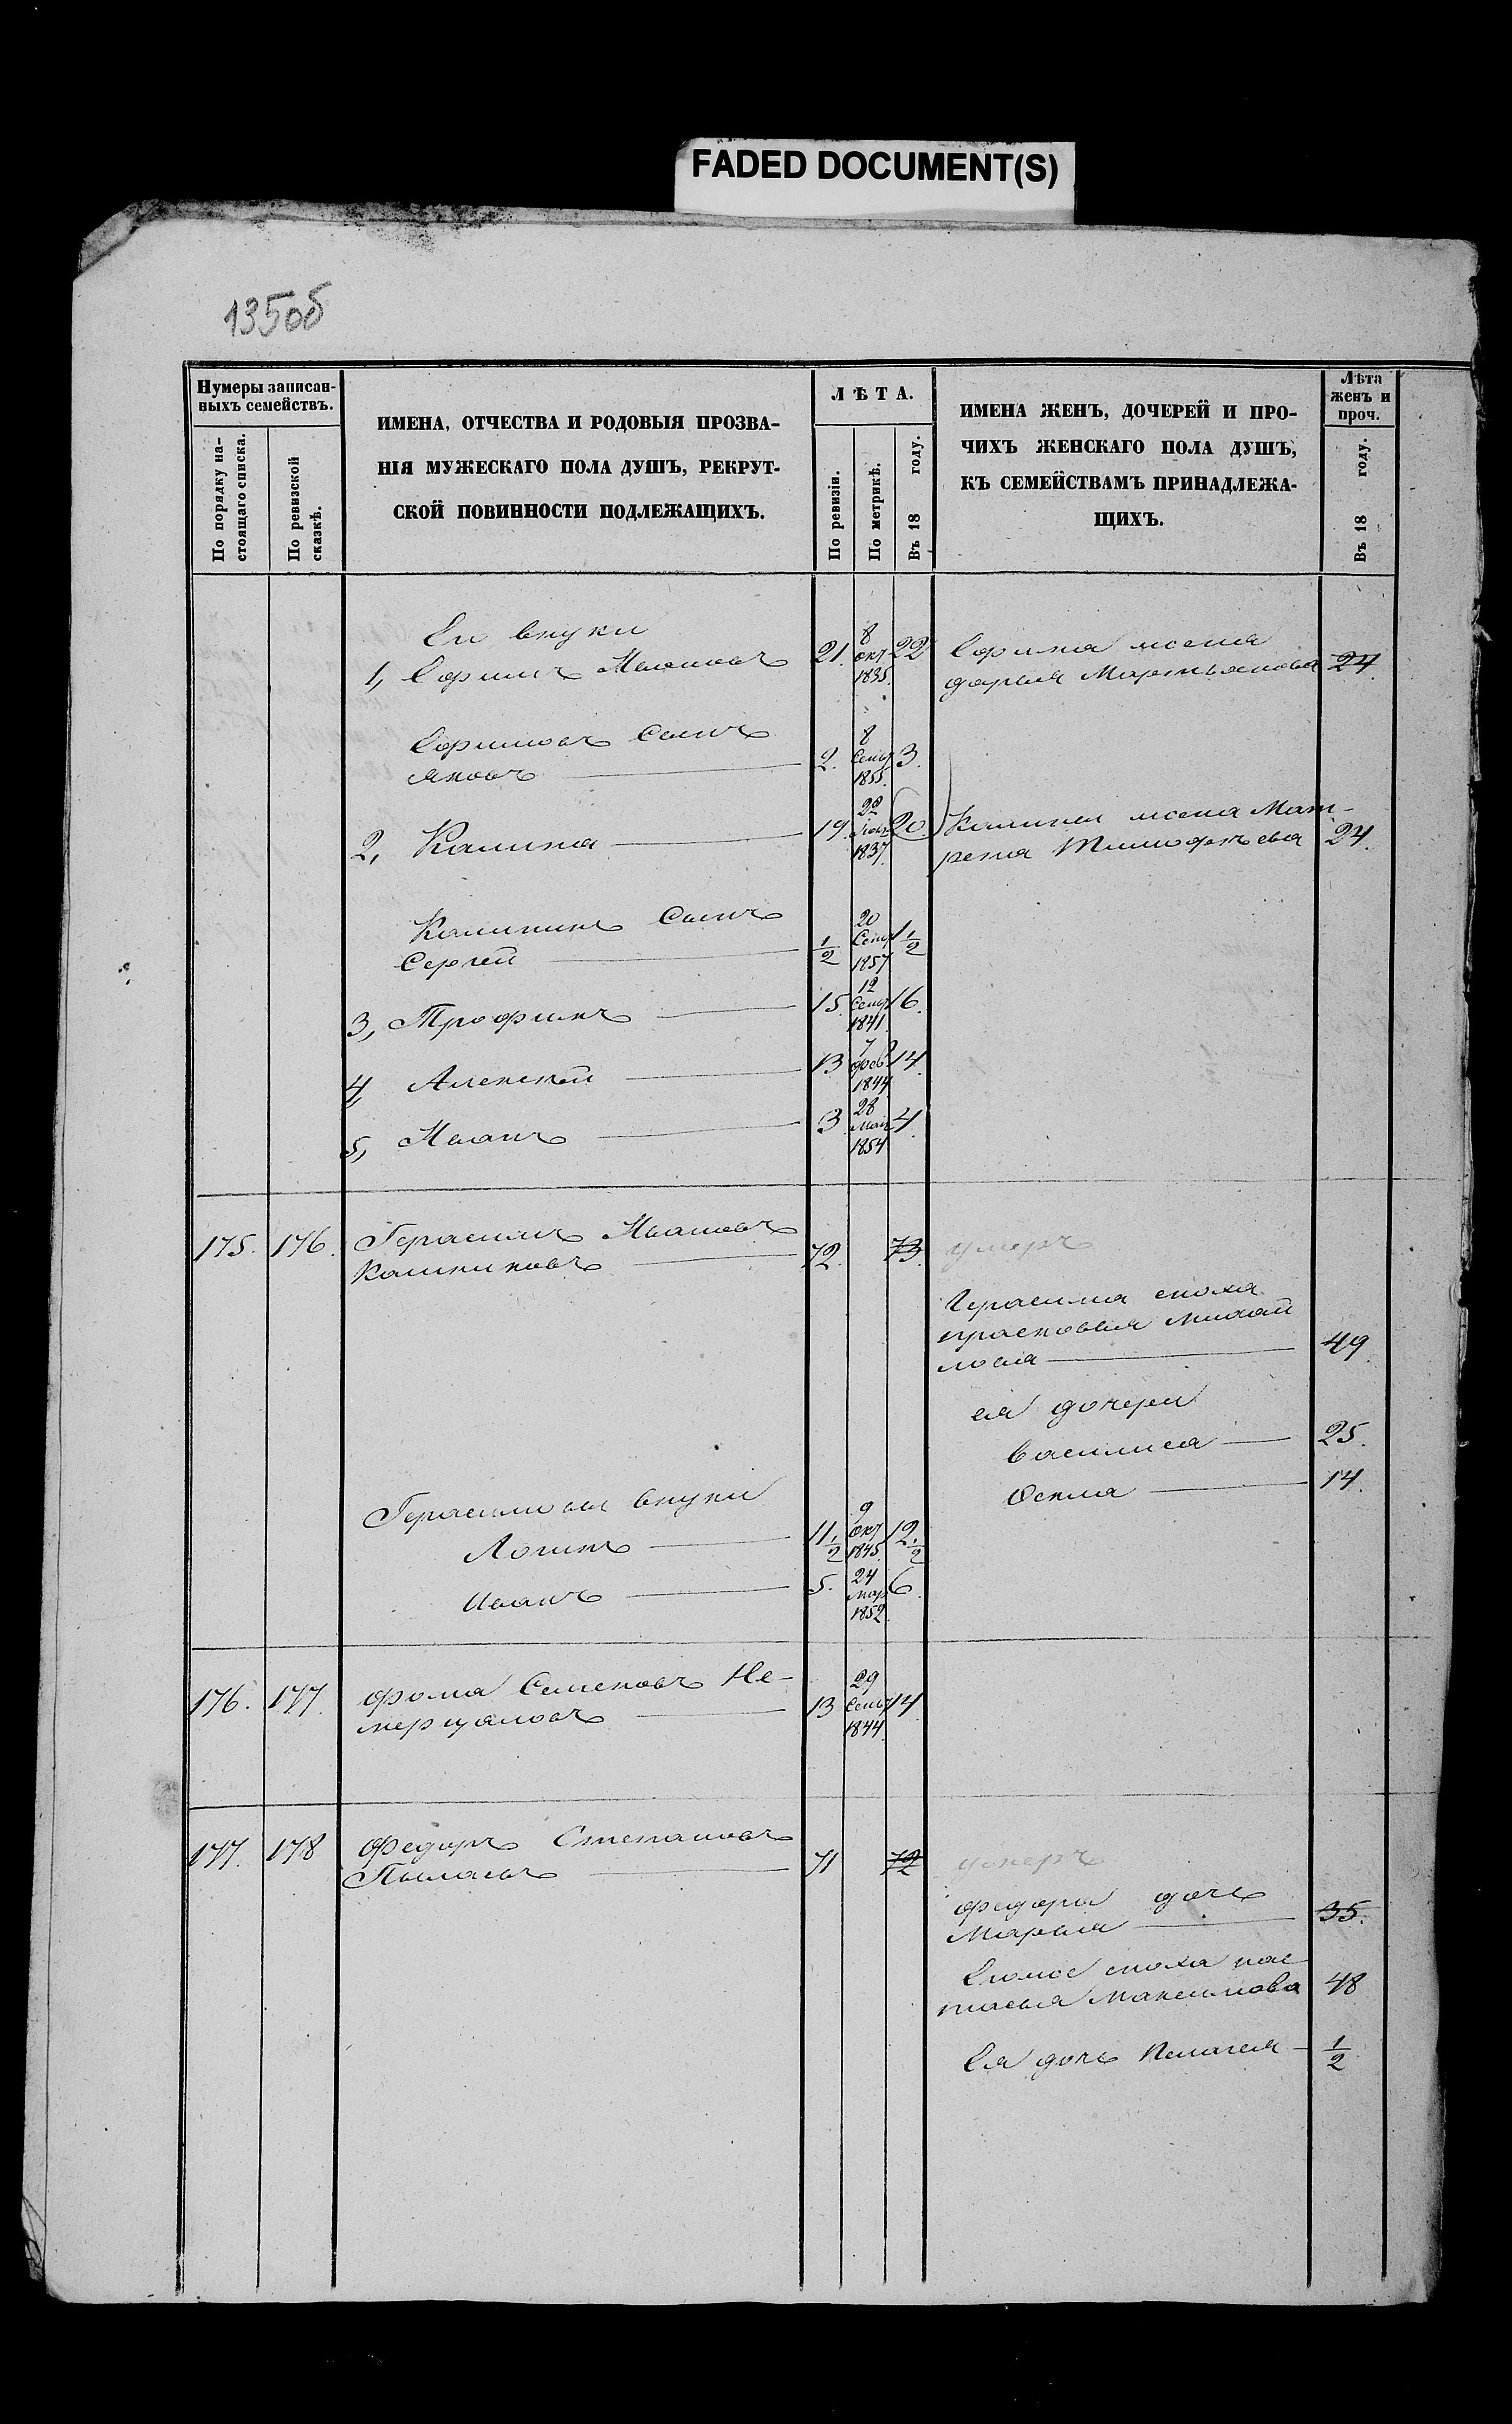 FADED DOCUMENT(S)
135об
Нумеры записан-
ныхъ семействъ.
По порядку на-
стоящаго списка.
По ревизской
сказкѣ.
ИМЕНА, ОТЧЕСТВА И РОДОВЫЯ ПРОЗВА-
НІЯ МУЖЕСКАГО ПОЛА ДУШЪ, РЕКРУТ-
СКОЙ ПОВИННОСТИ ПОДЛЕЖАЩИХЪ.
ЛѢТА.
По ревизіи.
По метрикѣ.
Въ 18 году.
ИМЕНА ЖЕНЪ, ДОЧЕРЕЙ И ПРО-
ЧИХЪ ЖЕНСКАГО ПОЛА ДУШЪ,
КЪ СЕМЕЙСТВАМЪ ПРИНАДЛЕЖА-
ЩИХЪ.
Лѣта
женъ и
проч.
Въ 18 году.
внуки
1, Ефимъ Ивановъ 21. 8 окт 1835. 22
Ефима жена
дарья Мартьянова 24
Ефимовъ сынъ
яковъ 2. 8 Сент 1855. 3.
2, Калина 19 1837 20
Калины жена Мат-
рена Тимофѣева 24.
Калининъ сынъ
Сергей 1/2 20 Сент 1857 1 1/2
3, Трофимъ 15 12 Сент 1841. 16.
4, Алексѣй 13 7 фев 1844 14.
5, Иванъ 3 28 Мая 1854 4.
175. 176. Герасимъ Ивановъ
Калинковъ 72. 73. умеръ
Герасима сноха
прасковья михай
лова 49
ея дочери
василиса 25.
Фекла 14.
Герасимовы внуки
Логинъ 11 1/2 9 окт 1845. 12 1/2
иванъ 5. 24 мар 1852 6
176. 177. фома Семеновъ Не-
мерцаловъ 13 29 Сент 1844 14
177. 178 Федоръ Степановъ
71 72 умеръ
федора дочь
Марья 35.
сноха нас
тасья Максимова 48
Ея дочь Пелагея 1/2